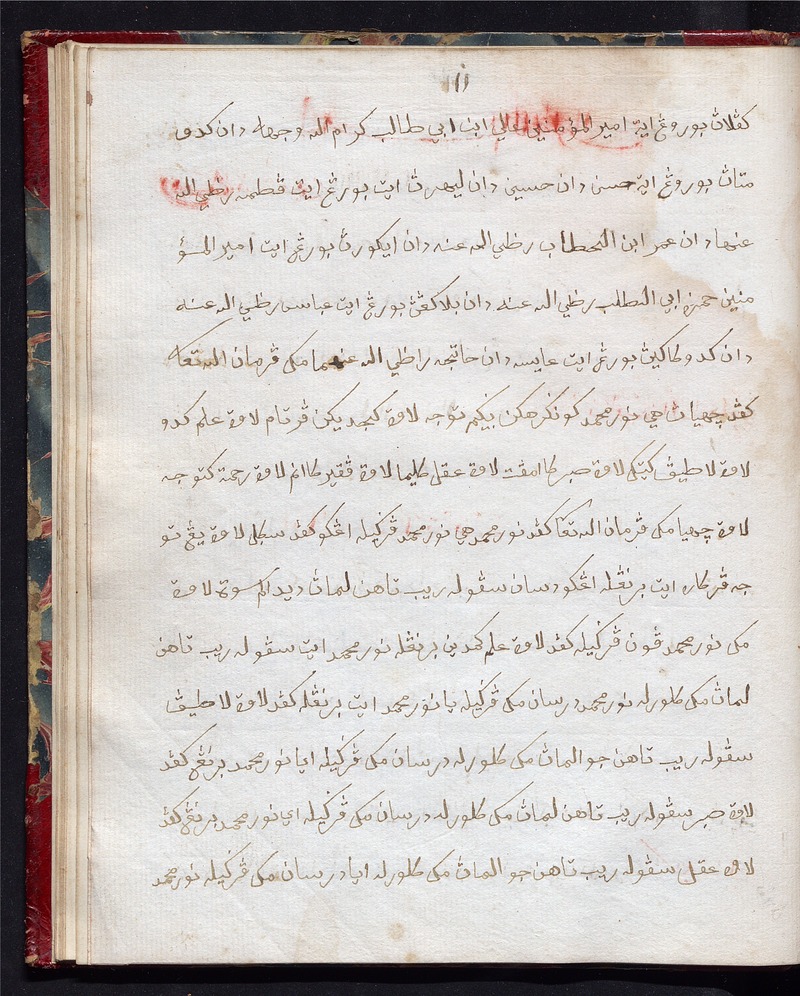 كڤلاڽ بوروڠ ايت امير المؤمنين عالي ابن ابي طالب كرام الله وجهه دان كدو
متاڽ بوروڠ ايت حسن دان حسين دان ليهرڽ ايت بورڠ ايت ڤطمه رظي الله
عنها دان عمر ابن الخطاب رظي الله عنه دان ايكورڽ بورڠ ايت امير المؤ
منين حمزه ابي المطلب رظي الله عنه دان بلاكڠڽ بورڠ ايت عباس رظي الله عنه
دان كدو كاكيڽ بورڠ ايت عايسه دان خاتجه راظي الله عنهما مك ڤرمان الله تعا
كڤد چهياڽ هي نور محمد كونكرهكن بݢيم توجه لاوة كجديكن ڤرتام لاوة علم كدو
لاوة لاطيڤ كتيݢ لاوة صبر كامڤت لاوة عقل كليما لاوة ڤقير كاانم لاوة رحمة كتوجه
لاوة چهيا مك ڤرمان الله تعا كڤد نور محمد هي نور محمد ڤرݢيله اڠكو كڤد سݢل لاوة يڠ تو
جه ڤركاره ايت برنڠله اڠكو دسان سڤوله ريب تاهن لماڽ ديدالم سوة لاوة
مك نور محمد ڤون ڤرݢيله كڤد لاوة علم كمدين برنڠله نور محمد ايت سڤوله ريب تاهن
لماڽ مك كلورله نور محمد درسان مك ڤرݢيله يا نور محمد ايت برنڠله كڤد لاوة لاطيڤ
سڤوله ريب تاهن جو الماڽ مك كلورله درسان مك ڤرݢيله ايا نور محمد برنڠ كڤد
لاوة صبر سڤوله ريب تاهن لماڽ مك كلورله درسان مك ڤرݢيله اي نور محمد برنڠ كڤد
لاوة عقل سڤوله ريب تاهن جو الماڽ مك كلورله ايا درسان مك ڤرݢيله نور محمد